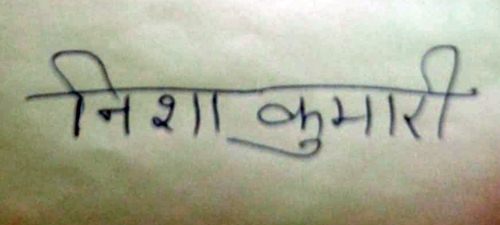 निशा कुमारी